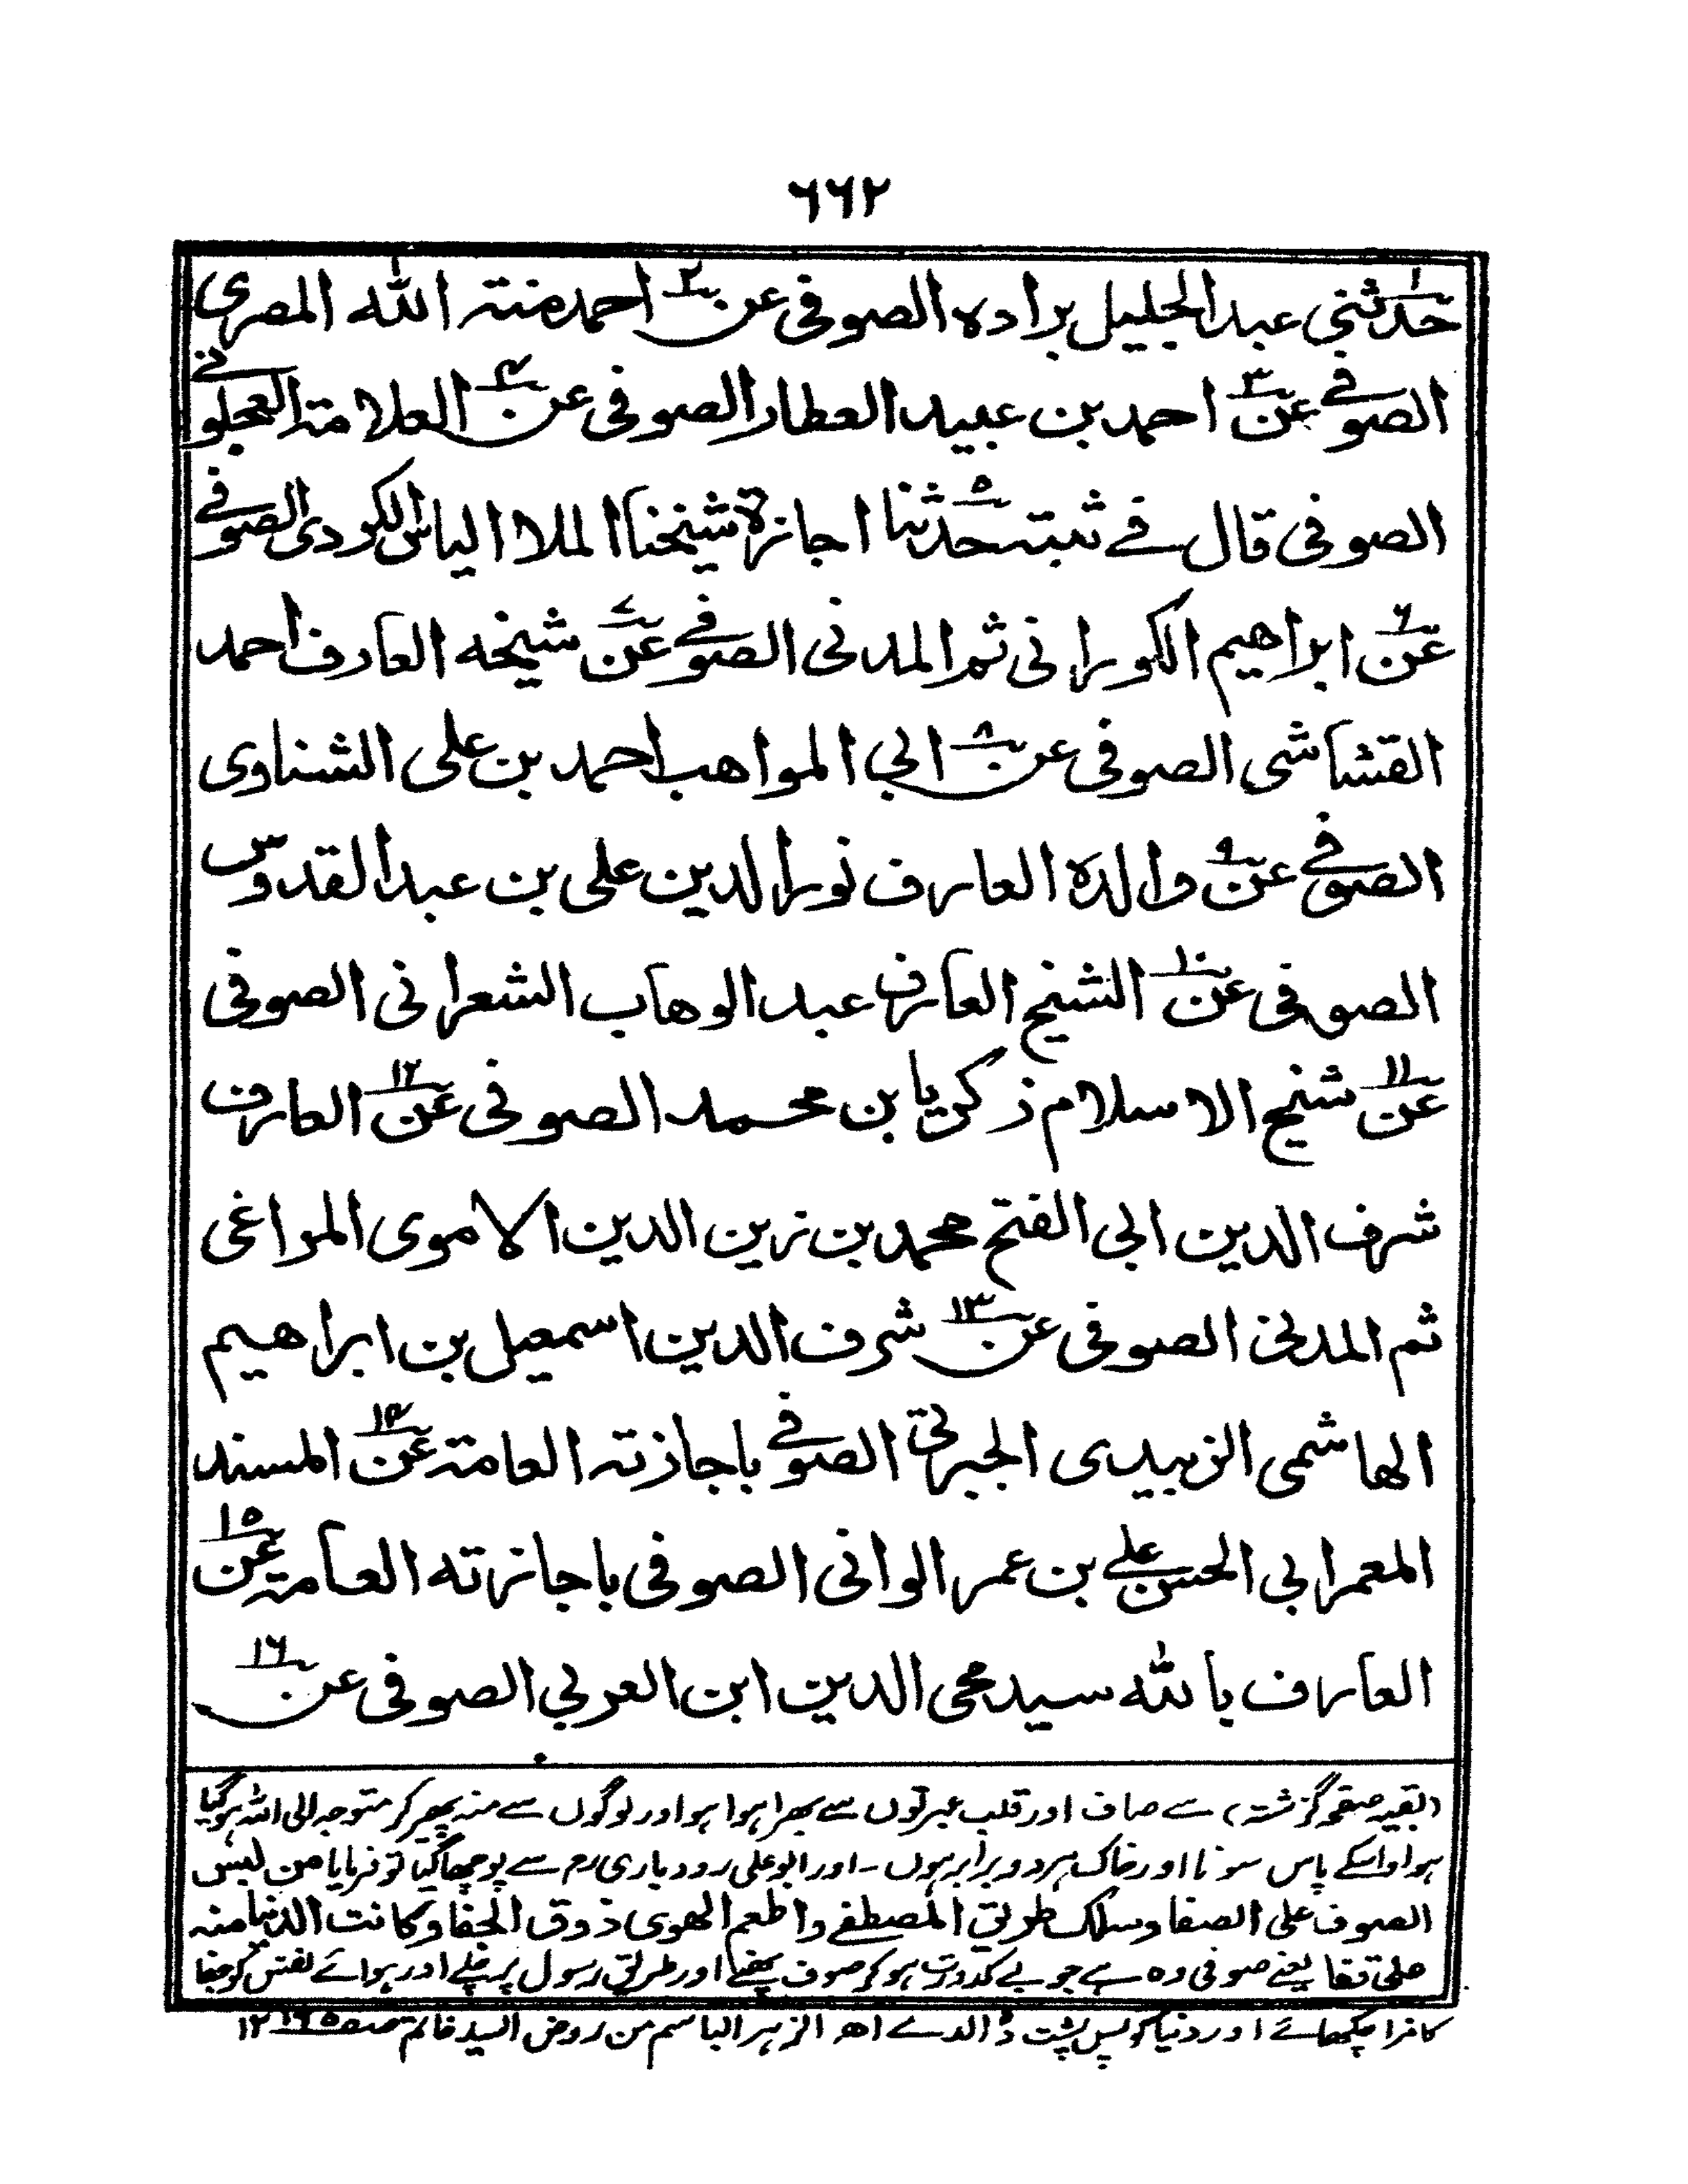 ٦٦٢
حدثني عبد الجليل براده الصوفی عن ٢ احمد منة الله المصری
الصوفے عن ٣ احمد بن عبيد العطار الصوفی عن ٤ العلامة العجلونے
الصوفی قال فے ثبته حدثنا ٥ اجازة شيخنا الملا الیاس الکوردی الصوفے
عن ٦ ابراهيم الکورانی ثم المدنی الصوفے عن ٧ شيخه العارف احمد
القشاشی الصوفی عن ٨ ابي المواهب احمد بن علی الشناوی
الصوفے عن ٩ والده العارف نور الدين علی بن عبد القدوس
الصوفی عن ١٠ الشيخ العارف عبد الوهاب الشعرانی الصوفی
عن ١١ شيخ الاسلام ذکریا بن محمد الصوفی عن ١٢ العارف
شرف الدين ابی الفتح محمد بن زين الدين الاموی المراغی
ثم المدنی الصوفی عن ١٣ شرف الدين اسمعيل بن ابراهيم
الهاشمی الزبيدی الجبرتی الصوفے باجازته العامة عن ١٤ المسند
المعمر ابی الحسن علے بن عمر الوانی الصوفی باجازته العامة عن ١٥
العارف بالله سيد محی الدين ابن العربی الصوفی عن ١٦
(بقیہ صفحہ گزشتہ) سے صاف اور قلب عبرتوں سے بھرا ہوا ہو اور لوگوں سے منہ پھیر کر متوجہ الی اللہ ہو گیا
ہو اور اسکے پاس سونا اور خاک ہر دو برابر ہوں ۔ اور ابو علی رودباری رح سے پوچھا گیا تو فرمایا من لبس
الصوف علی الصفا وسلک طریق المصطفے واطعم الهوی ذوق الجفا وکانت الدنیا منه
علی قفا یعنے صوفی وہ ہے جو بے کدورت ہو کر صوف پہنے اور طریق رسول پر چلے اور ہوائے نفس کو جفا
کا مزا چکھائے اور دنیا کو پس پشت ڈالدے اھ الزہر الباسم من روض السید حاتم صـ ١٢